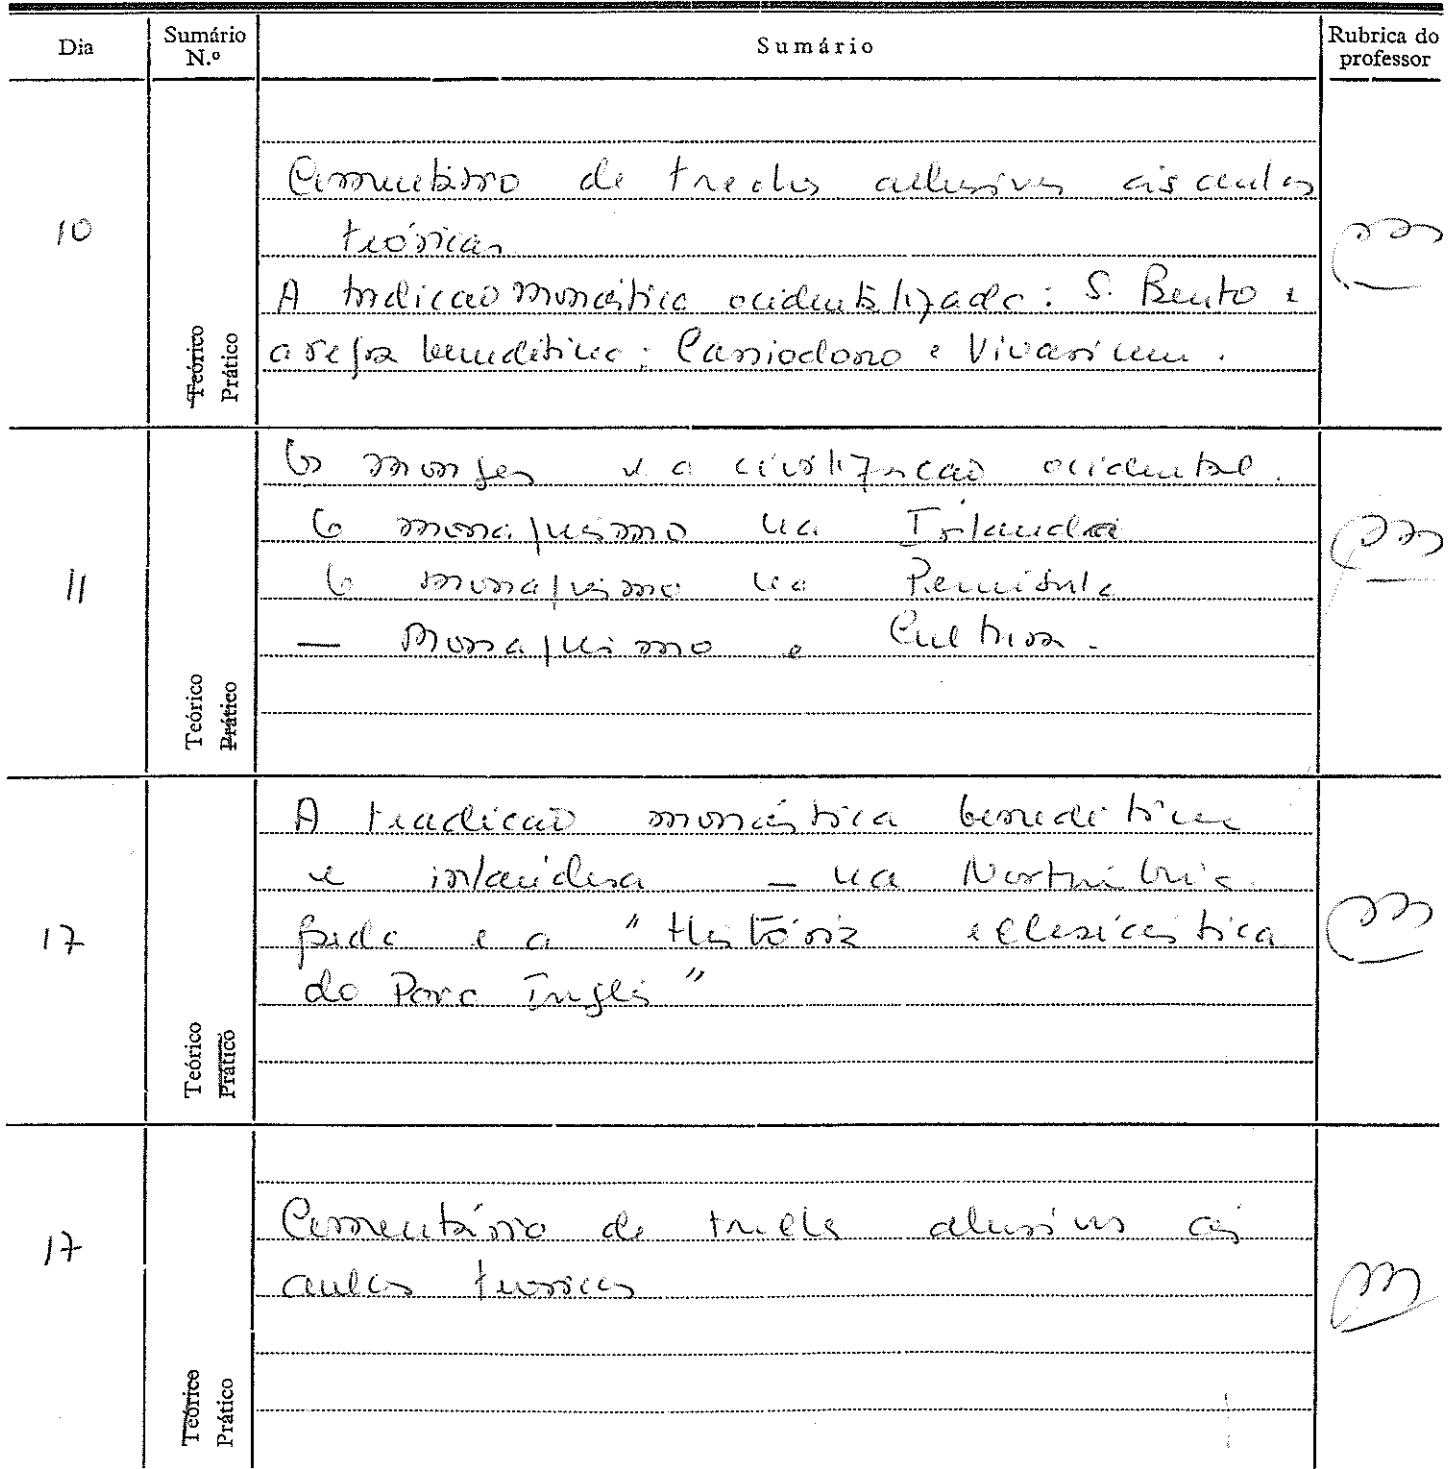 Dia Sumário N.º Sumário Rubrica do professor
10
Comentário de trechos alusivos às aulas
teóricas
A tradicao monástica ocidentalizada: S. Bento e
a regra beneditina; Cassiodoro e Vivarium.
Teórico
Prático
11
Os monges e a civilizacao ocidental.
O monaquismo na Irlanda
O monaquismo na Península
— Monaquismo e Cultura.
Teórico
Prático
17
A tradicao monástica beneditina
e irlandesa — na Nortúmbria.
Beda e a "História eclesiástica
do Povo Inglês"
Teórico
Prático
17
Comentário de trechos alusivos às
aulas teóricas
Teórico
Prático